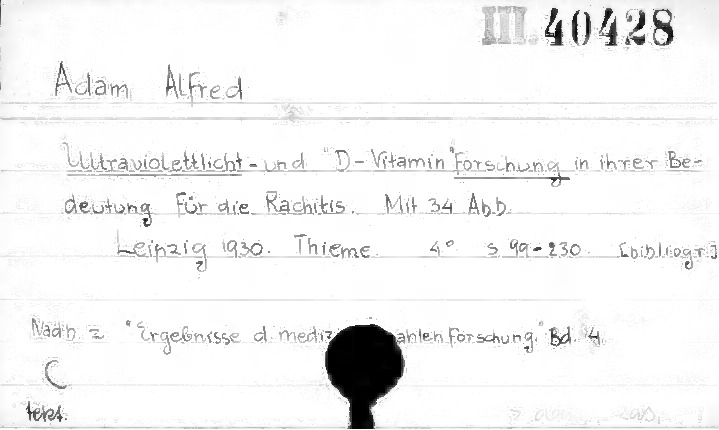 III. 40428
Adam Alfred
Ultraviolettlicht- und "D-Vitamin" Forschung in ihrer Be-
deutung für die Rachitis. Mit 34 Abb.
Leipzig 1930. Thieme. 4° S 99-230. [bibliogr.]
Nadb. z "Ergebnisse d. mediz ahlenforschung." Bd. 4.
C
tekt.